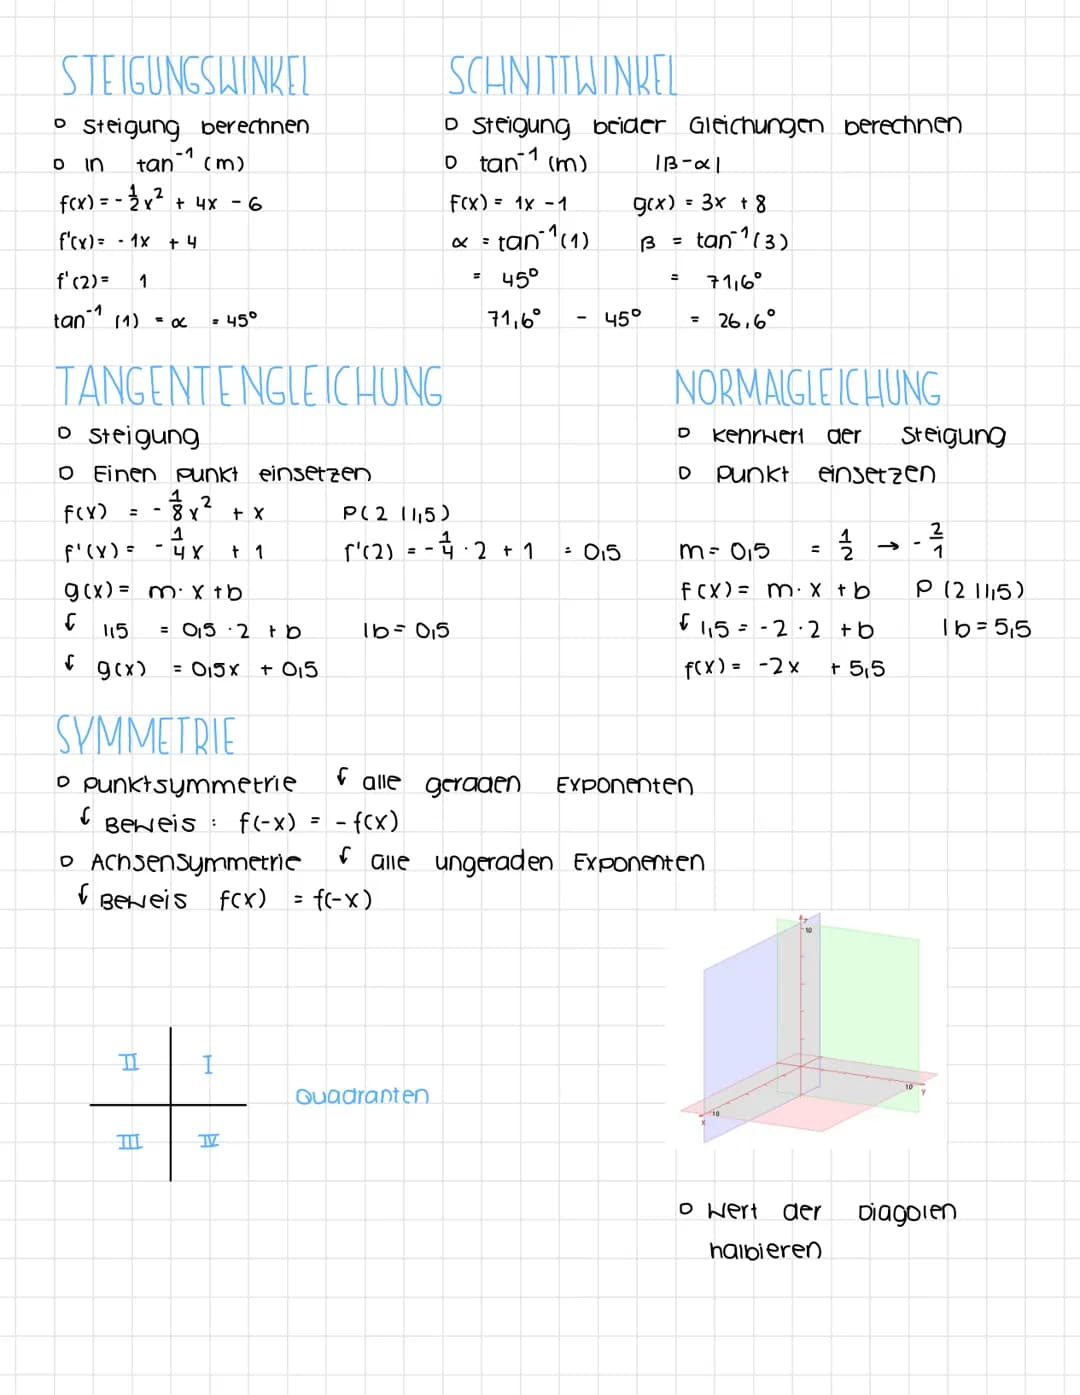 STEIGUNGSWINKEL
▷ Steigung berechnen
▷ in tan⁻¹ (m)
f(x) = - 1/2 x² + 4x - 6
f'(x) = - 1x + 4
f'(2) = 1
tan⁻¹ (1) = α = 45°
SCHNITTWINKEL
▷ Steigung beider Gleichungen berechnen
▷ tan⁻¹ (m) |β-α|
F(x) = 1x - 1 g(x) = 3x + 8
α = tan⁻¹(1) β = tan⁻¹(3)
= 45° = 71,6°
71,6° - 45° = 26,6°
TANGENTENGLEICHUNG
▷ Steigung
▷ Einen Punkt einsetzen
f(x) = - 1/8 x² + x P(2|1,5)
f'(x) = - 1/4 x + 1 f'(2) = - 1/4 · 2 + 1 = 0,5
g(x) = m · x + b
↳ 1,5 = 0,5 · 2 + b | b = 0,5
↳ g(x) = 0,5x + 0,5
NORMALGLEICHUNG
▷ Kehrwert der Steigung
▷ Punkt einsetzen
m = 0,5 = 1/2 → - 2/1
f(x) = m · x + b P(2|1,5)
↳ 1,5 = -2 · 2 + b | b = 5,5
f(x) = -2x + 5,5
SYMMETRIE
▷ Punktsymmetrie ↳ alle geraden Exponenten
↳ Beweis : f(-x) = - f(x)
▷ Achsensymmetrie ↳ alle ungeraden Exponenten
↳ Beweis f(x) = f(-x)
II I
Quadranten
III IV
z
10
10
y
10
x
▷ Wert der Diagolen
halbieren